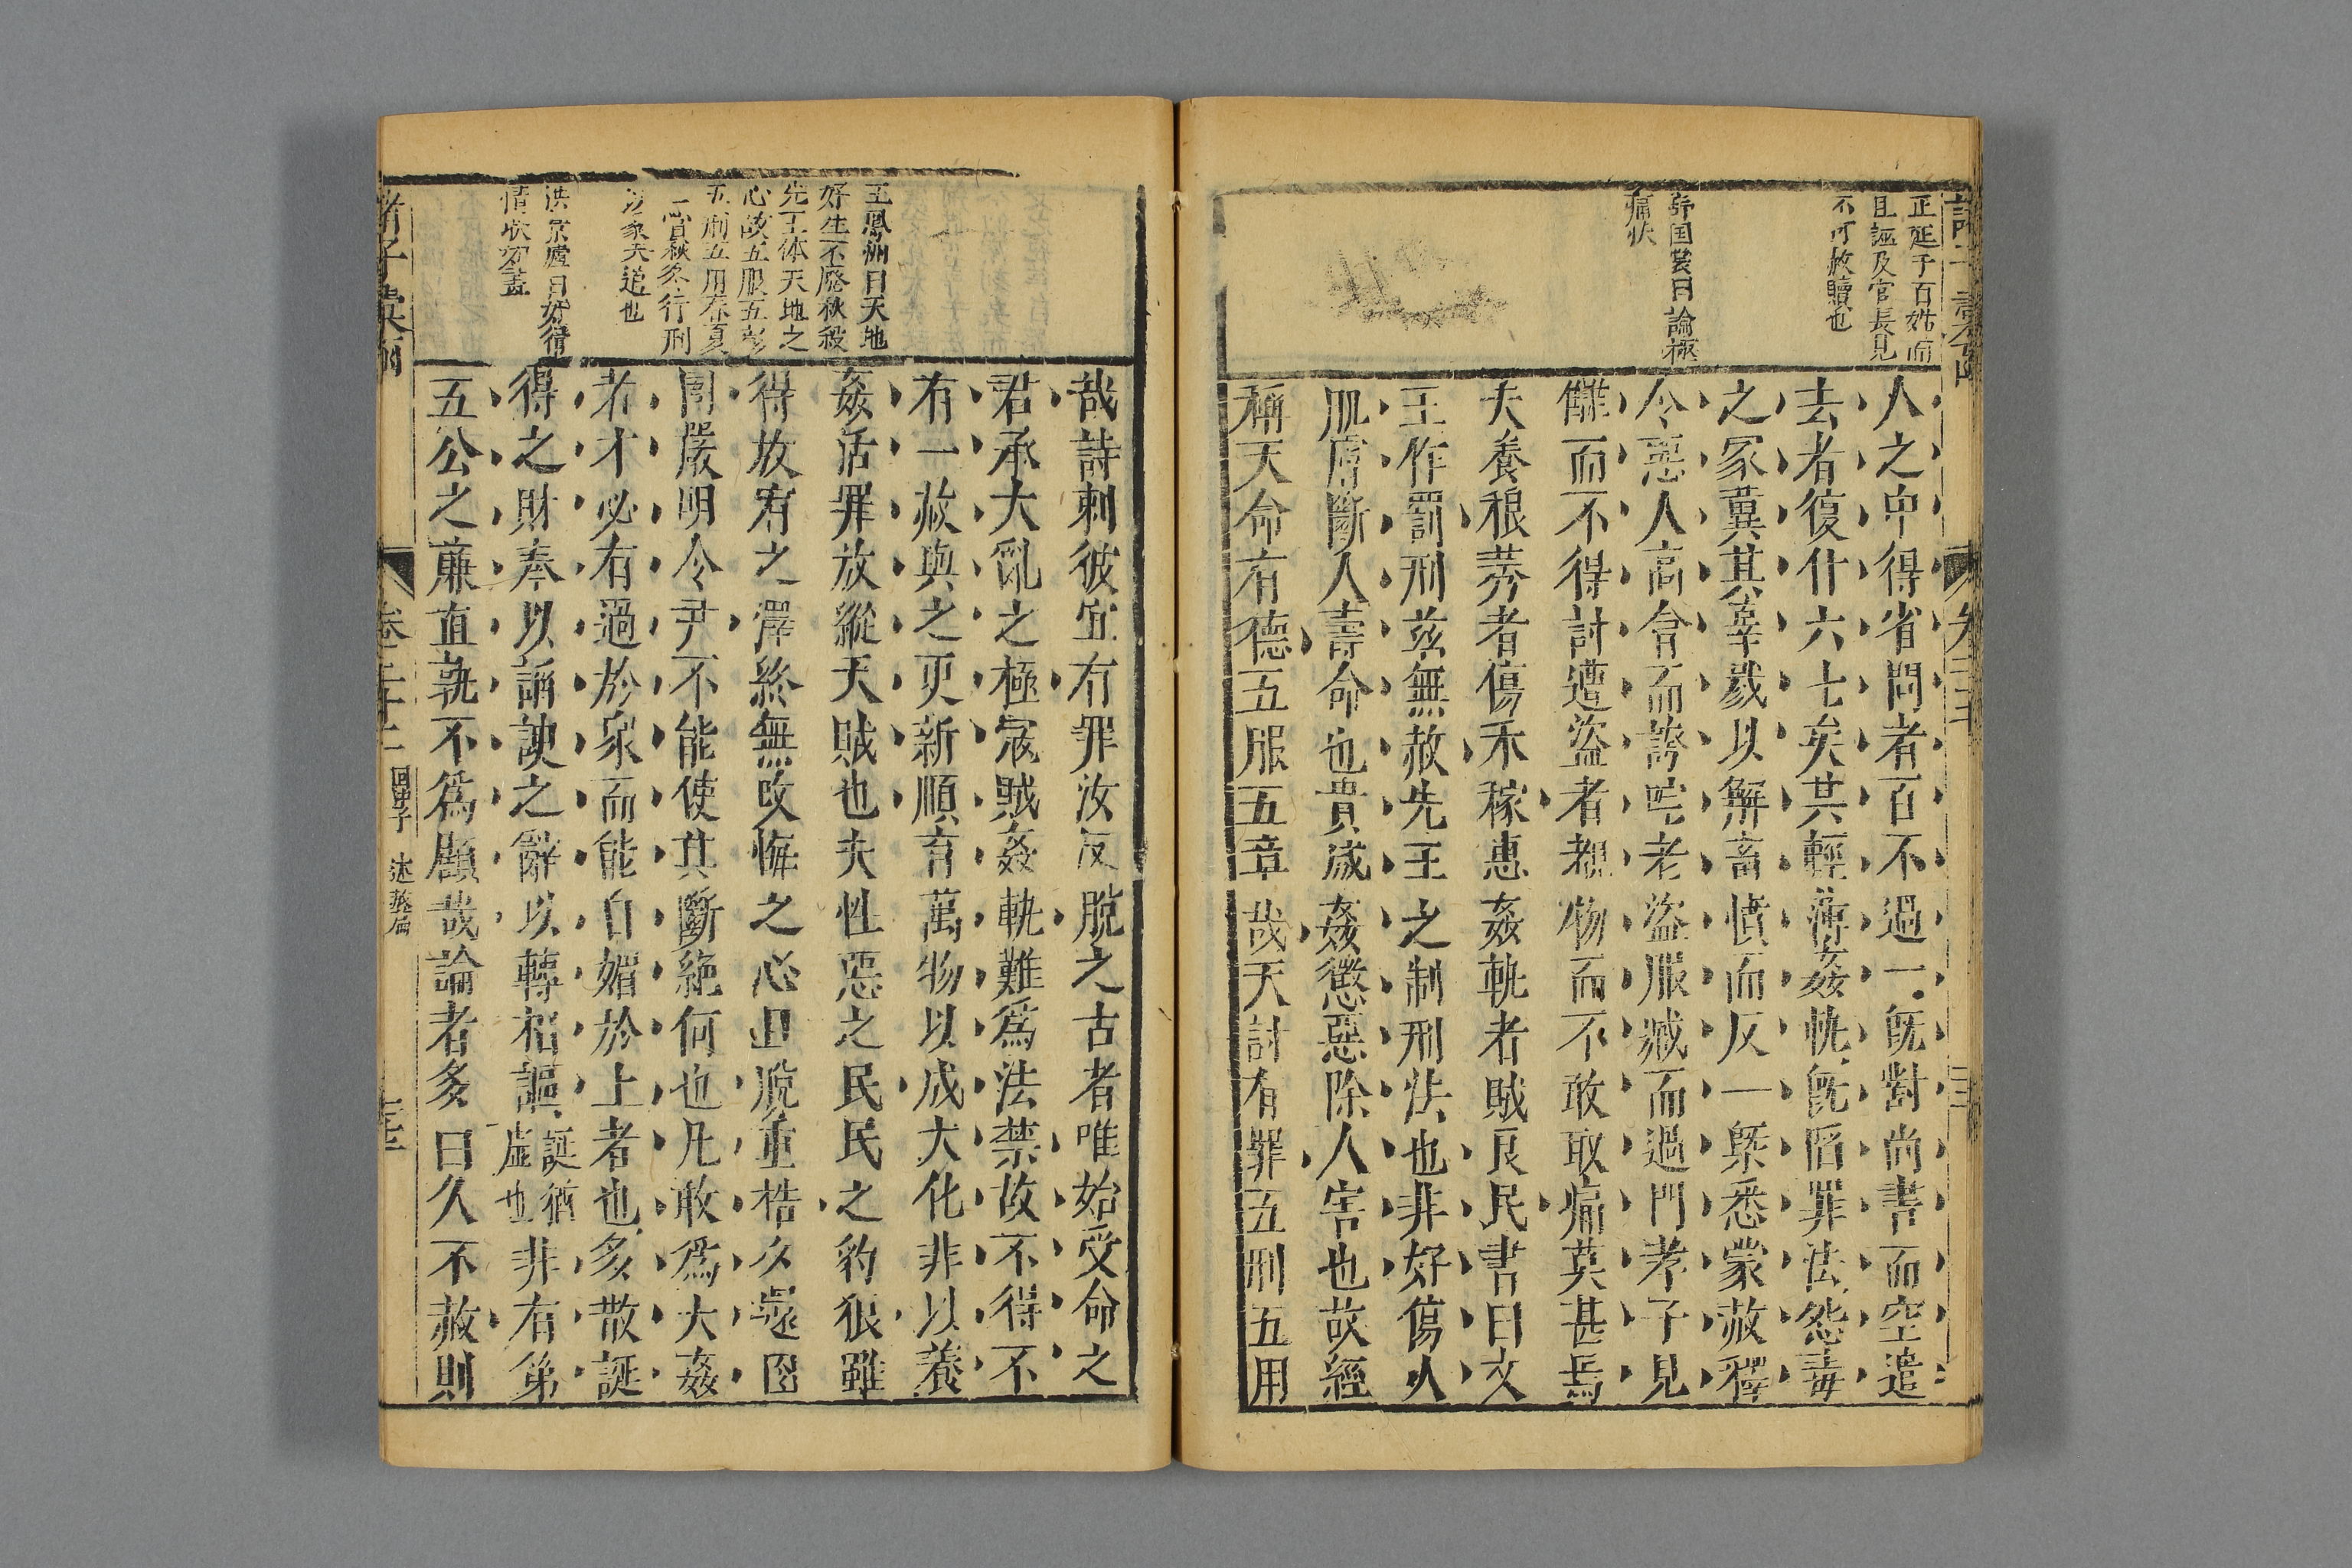 正延于百姓而
且誣及官長見
不可赦贖也
論極
痛快
人之中得省問者百不過一既對尚書而空遣
去者復什六七矣其輕薄姦軌既陷罪法怨毒
之家冀其辜戮以解畜憤而反一槩悉蒙赦釋
令惡人高會而誇咤老盜服臧而過門孝子見
讎而不得討遭盜者覩物而不敢取痛莫甚焉
夫養稂莠者傷禾稼惠姦軌者賊良民書曰文
王作罰刑茲無赦先王之制刑法也非好傷人
肌膚斷人壽命也貴威姦懲惡除人害也故經
稱天命有德五服五章哉天討有罪五刑五用
王鳳洲曰天地
好生不廢秋殺
先王体天地之
心故五服五彰
五刑五用春夏
賞秋冬行刑
天道也
洪景廬曰奸猾
情狀
哉詩刺彼宜有罪汝反脫之古者唯始受命之
君承大亂之極寇賊姦軌難爲法禁故不得不
有一赦與之更新順育萬物以成大化非以養
姦活罪放縱天賊也夫性惡之民民之豺狼雖
得放宥之澤終無改悔之心旦脫重梏夕還囹
圄嚴明令尹不能使其斷絶何也凡敢爲大姦
者才必有過於衆而能自媚於上者也多散誕
得之財奉以諂諛之辭以轉相謳誕猶虛也非有第
五公之廉直孰不爲顧哉論者多曰久不赦則
諸子彙函
卷二十二
回中子
述赦篇